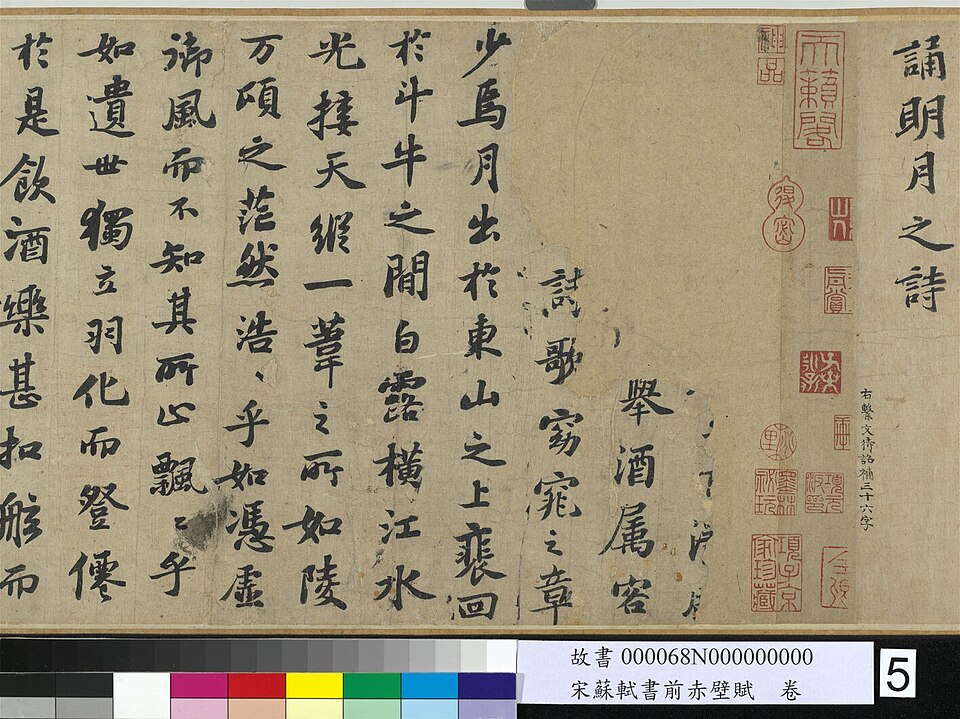 誦明月之詩
右繫文待詔補三十六字
天籟閣
項子京家珍藏
墨林秘玩
舉酒属客
詩歌窈窕之章
少焉月出於東山之上裴回
於斗牛之間白露橫江水
光接天縱一葦之所如陵
万頃之茫然浩〻乎如憑虛
御風而不知其所止飄〻乎
如遺世獨立羽化而登僊
於是飲酒樂甚扣舷而
故書 000068N000000000
宋蘇軾書前赤壁賦 卷
5